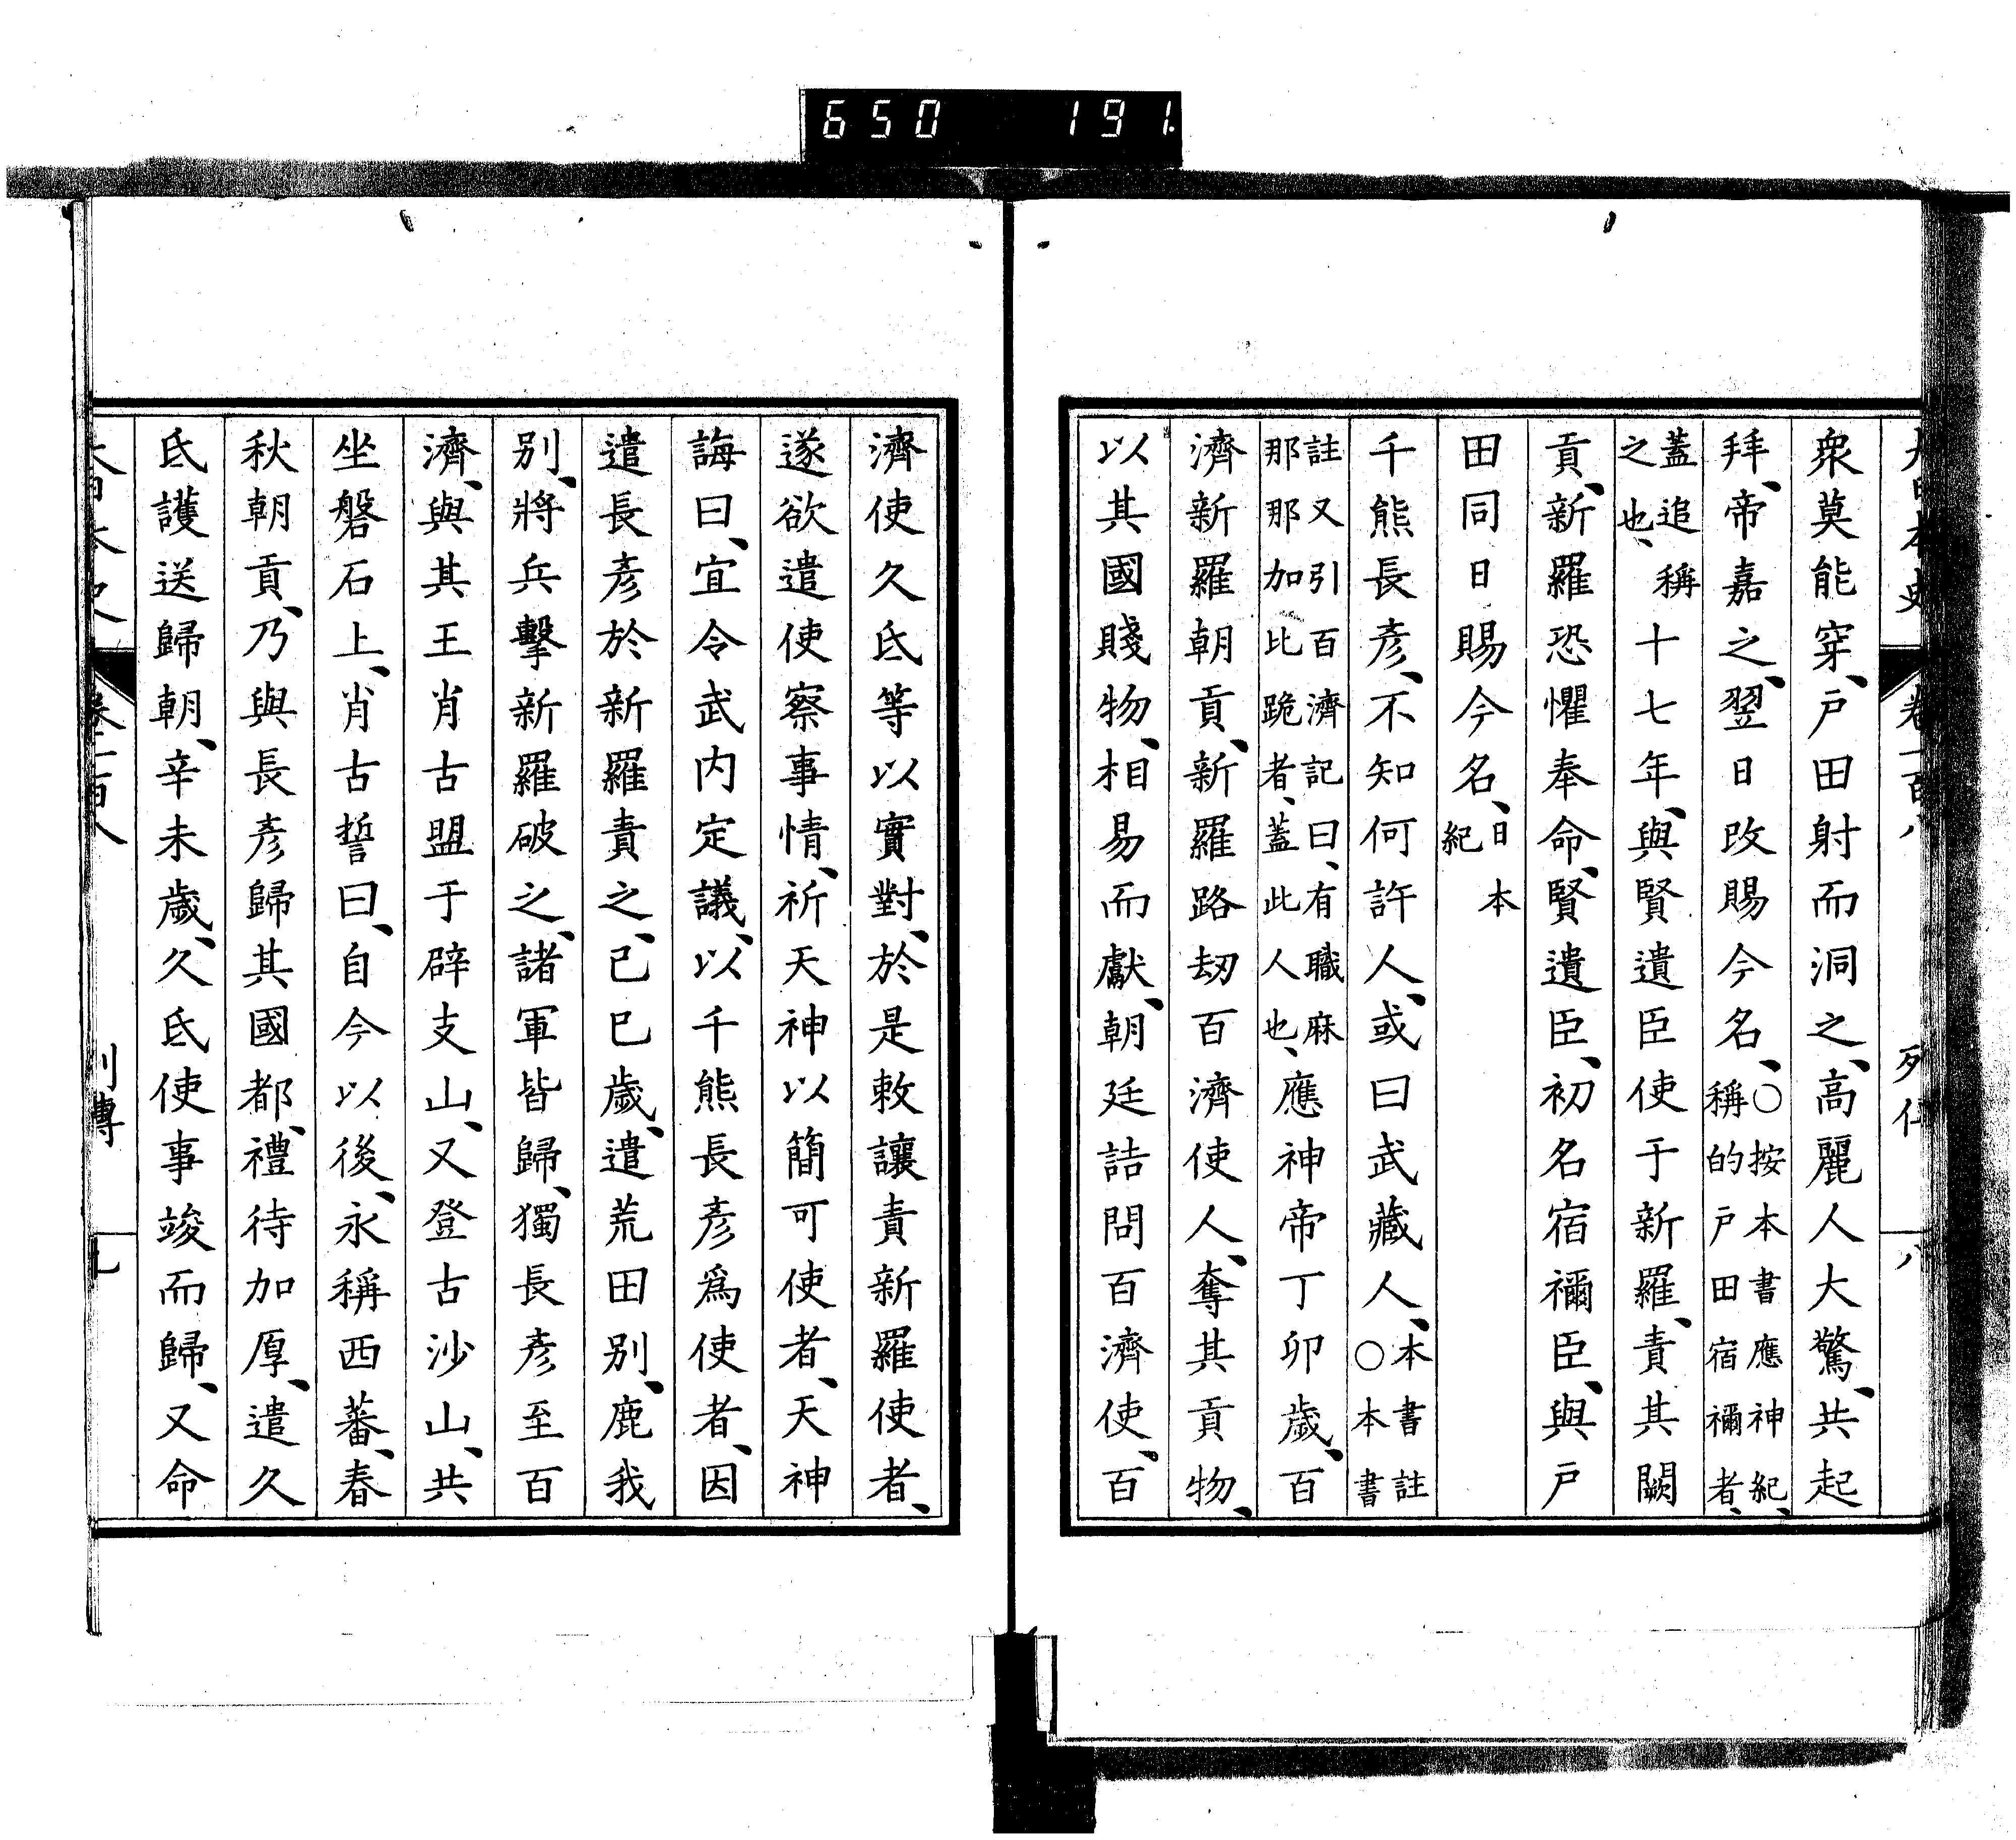 650 191.
大日本史 卷一百八 列傳 八
衆莫能穿、戸田射而洞之、高麗人大驚、共起
拜、帝嘉之、翌日改賜今名、○按本書應神紀、稱的戸田宿禰者、
蓋追稱之也、十七年、與賢遺臣使于新羅、責其闕
貢、新羅恐懼奉命、賢遺臣、初名宿禰臣、與戸
田同日賜今名、日本紀
千熊長彥、不知何許人、或曰武藏人、本書註○本書
註又引百濟記曰、有職麻那那加比跪者、蓋此人也、應神帝丁卯歲、百
濟新羅朝貢、新羅路劫百濟使人、奪其貢物、
以其國賤物、相易而獻、朝廷詰問百濟使、百
濟使久氐等以實對、於是敕讓責新羅使者、
遂欲遣使察事情、祈天神以簡可使者、天神
誨曰、宜令武内定議、以千熊長彥爲使者、因
遣長彥於新羅責之、己巳歲、遣荒田別、鹿我
別、將兵擊新羅破之、諸軍皆歸、獨長彥至百
濟、與其王肖古盟于辟支山、又登古沙山、共
坐磐石上、肖古誓曰、自今以後、永稱西蕃、春
秋朝貢、乃與長彥歸其國都、禮待加厚、遣久
氐護送歸朝、辛未歲、久氐使事竣而歸、又命
大日本史 卷一百八 列傳 九